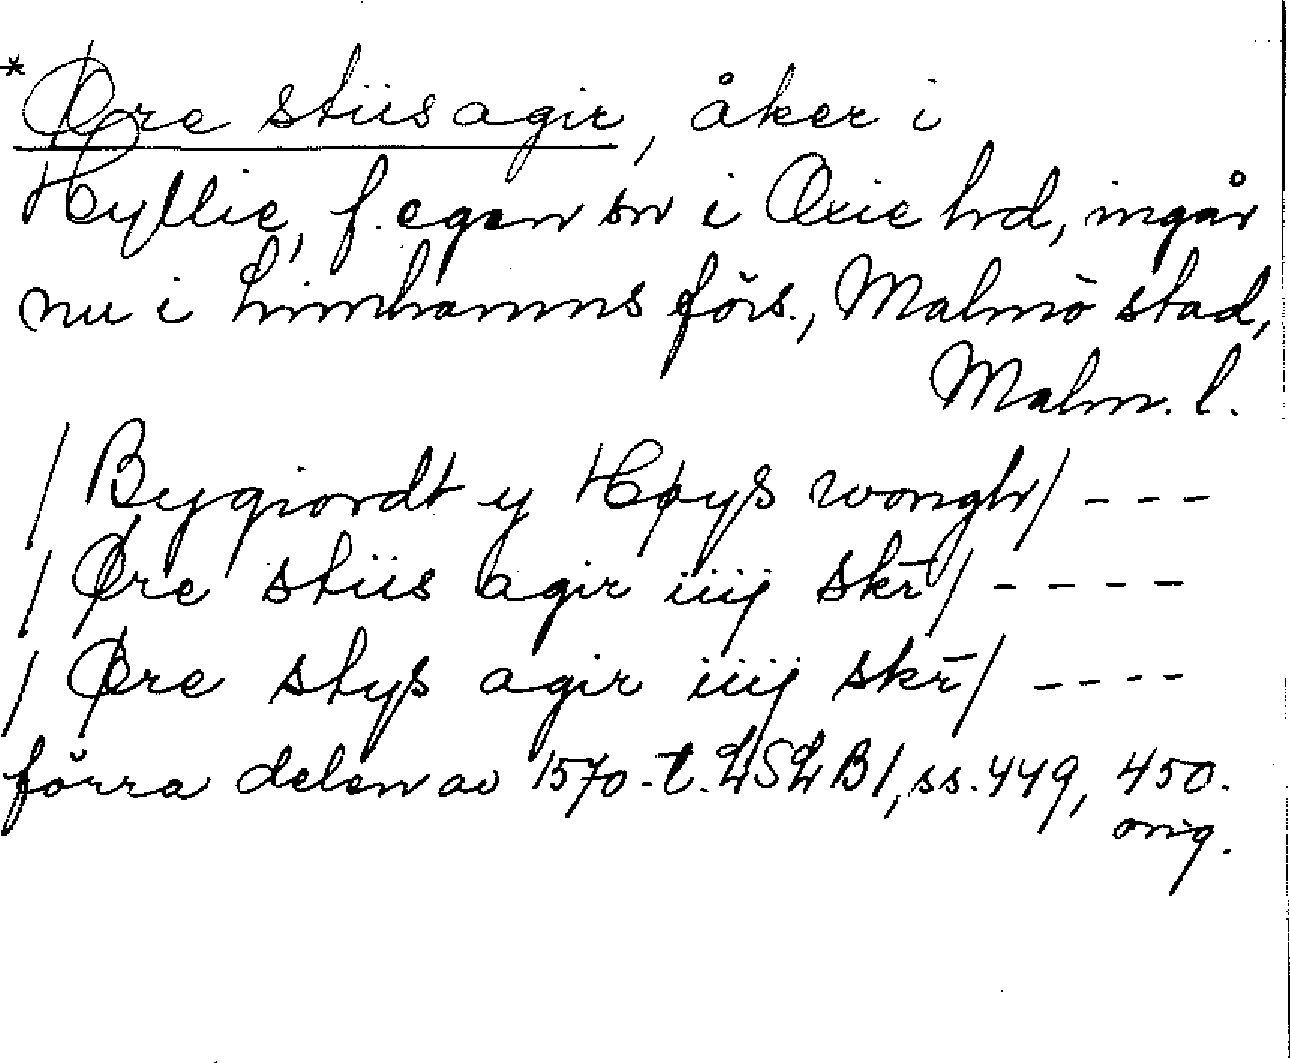 *Øre stiis agir, åker i
Hyllie, f. egen sn i Oxie hd, ingår
nu i Limhamns förs., Malmö stad,
Malm. l.
/Bygiordt y Høys wongh/ - - -
/Øre stiis agir iiij skr̄/ - - - -
/Øre stys agir iiij skr̄/ - - - -
förra delen av 1570-t. LSLB1, ss. 449, 450.
orig.